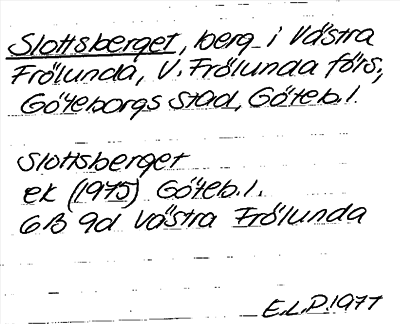 Slottsberget, berg i Västra
Frölunda, V. Frölunda förs.,
Göteborgs stad, Göteb.l.
Slottsberget
ek (1975) Göteb.l.
6B 9d Västra Frölunda
E.L.P. 1977